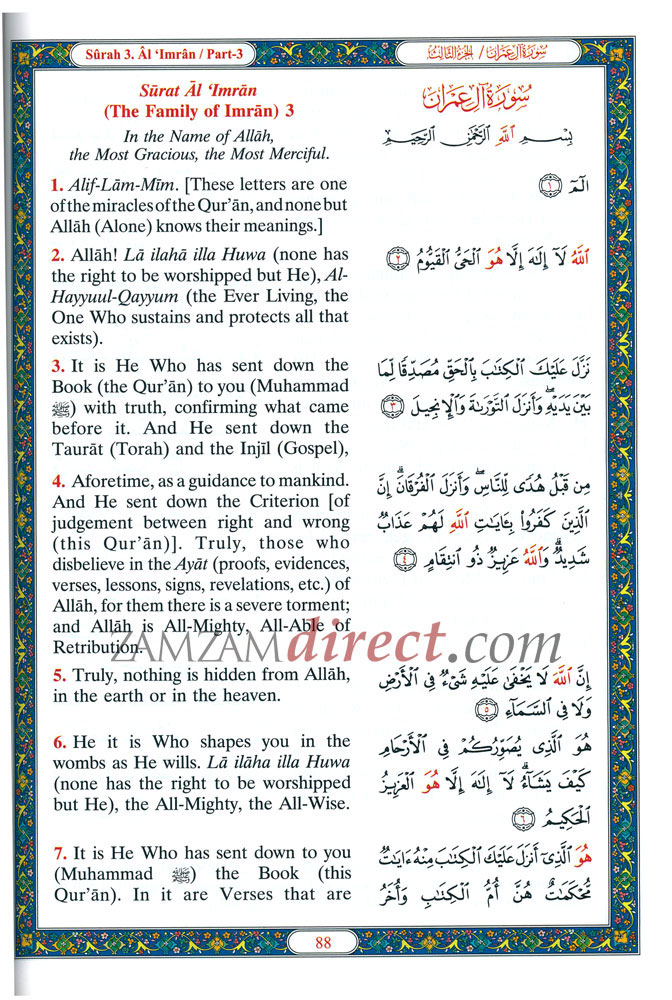 Sûrah 3. Âl ‘Imrân / Part-3
سُورَةُ آلِ عِمْرَان / الجُزْءُ الثَّالِثُ
Sūrat Āl ‘Imrān
(The Family of Imrān) 3
In the Name of Allāh,
the Most Gracious, the Most Merciful.
1. Alif-Lām-Mīm. [These letters are one
of the miracles of the Qur’ān, and none but
Allāh (Alone) knows their meanings.]
2. Allāh! Lā ilahā illa Huwa (none has
the right to be worshipped but He), Al-
Hayyuul-Qayyum (the Ever Living, the
One Who sustains and protects all that
exists).
3. It is He Who has sent down the
Book (the Qur’ān) to you (Muhammad
ﷺ) with truth, confirming what came
before it. And He sent down the
Taurāt (Torah) and the Injīl (Gospel),
4. Aforetime, as a guidance to mankind.
And He sent down the Criterion [of
judgement between right and wrong
(this Qur’ān)]. Truly, those who
disbelieve in the Ayāt (proofs, evidences,
verses, lessons, signs, revelations, etc.) of
Allāh, for them there is a severe torment;
and Allāh is All-Mighty, All-Able of
Retribution.
5. Truly, nothing is hidden from Allāh,
in the earth or in the heaven.
6. He it is Who shapes you in the
wombs as He wills. Lā ilāha illa Huwa
(none has the right to be worshipped
but He), the All-Mighty, the All-Wise.
7. It is He Who has sent down to you
(Muhammad ﷺ) the Book (this
Qur’ān). In it are Verses that are
سُورَةُ آلِ عِمْرَان
بِسْمِ ٱللَّهِ ٱلرَّحْمَٰنِ ٱلرَّحِيمِ
الٓمٓ ١
ٱللَّهُ لَآ إِلَٰهَ إِلَّا هُوَ ٱلْحَىُّ ٱلْقَيُّومُ ٢
نَزَّلَ عَلَيْكَ ٱلْكِتَٰبَ بِٱلْحَقِّ مُصَدِّقًا لِّمَا
بَيْنَ يَدَيْهِ ۖ وَأَنزَلَ ٱلتَّوْرَىٰةَ وَٱلْإِنجِيلَ ٣
مِن قَبْلُ هُدًى لِّلنَّاسِ ۖ وَأَنزَلَ ٱلْفُرْقَانَ ۗ إِنَّ
ٱلَّذِينَ كَفَرُوا۟ بِـَٔايَٰتِ ٱللَّهِ لَهُمْ عَذَابٌ
شَدِيدٌ ۗ وَٱللَّهُ عَزِيزٌ ذُو ٱنتِقَامٍ ٤
إِنَّ ٱللَّهَ لَا يَخْفَىٰ عَلَيْهِ شَىْءٌ فِى ٱلْأَرْضِ
وَلَا فِى ٱلسَّمَآءِ ٥
هُوَ ٱلَّذِى يُصَوِّرُكُمْ فِى ٱلْأَرْحَامِ
كَيْفَ يَشَآءُ ۚ لَآ إِلَٰهَ إِلَّا هُوَ ٱلْعَزِيزُ
ٱلْحَكِيمُ ٦
هُوَ ٱلَّذِىٓ أَنزَلَ عَلَيْكَ ٱلْكِتَٰبَ مِنْهُ ءَايَٰتٌ
مُّحْكَمَٰتٌ هُنَّ أُمُّ ٱلْكِتَٰبِ وَأُخَرُ
ZAMZAMdirect.com
88